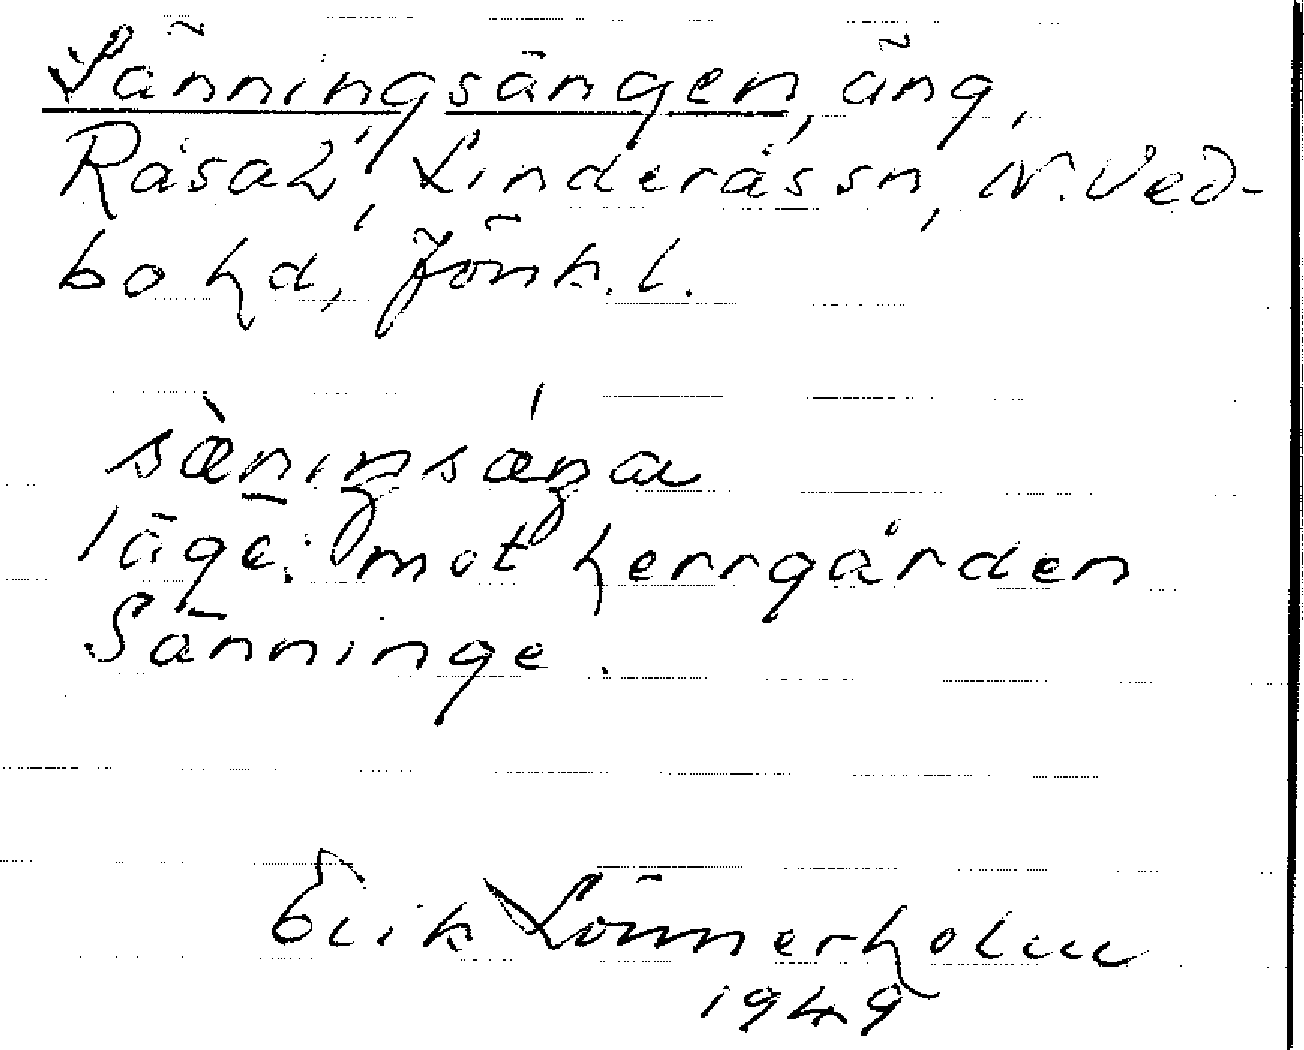 Sänningsängen, äng,
Råsah, Linderås sn, N. Ved-
bo hd, Jönk. l.
sæ̀niŋsǽŋa
läge: mot herrgården
Sänninge.
Erik Lönnerholm
1949